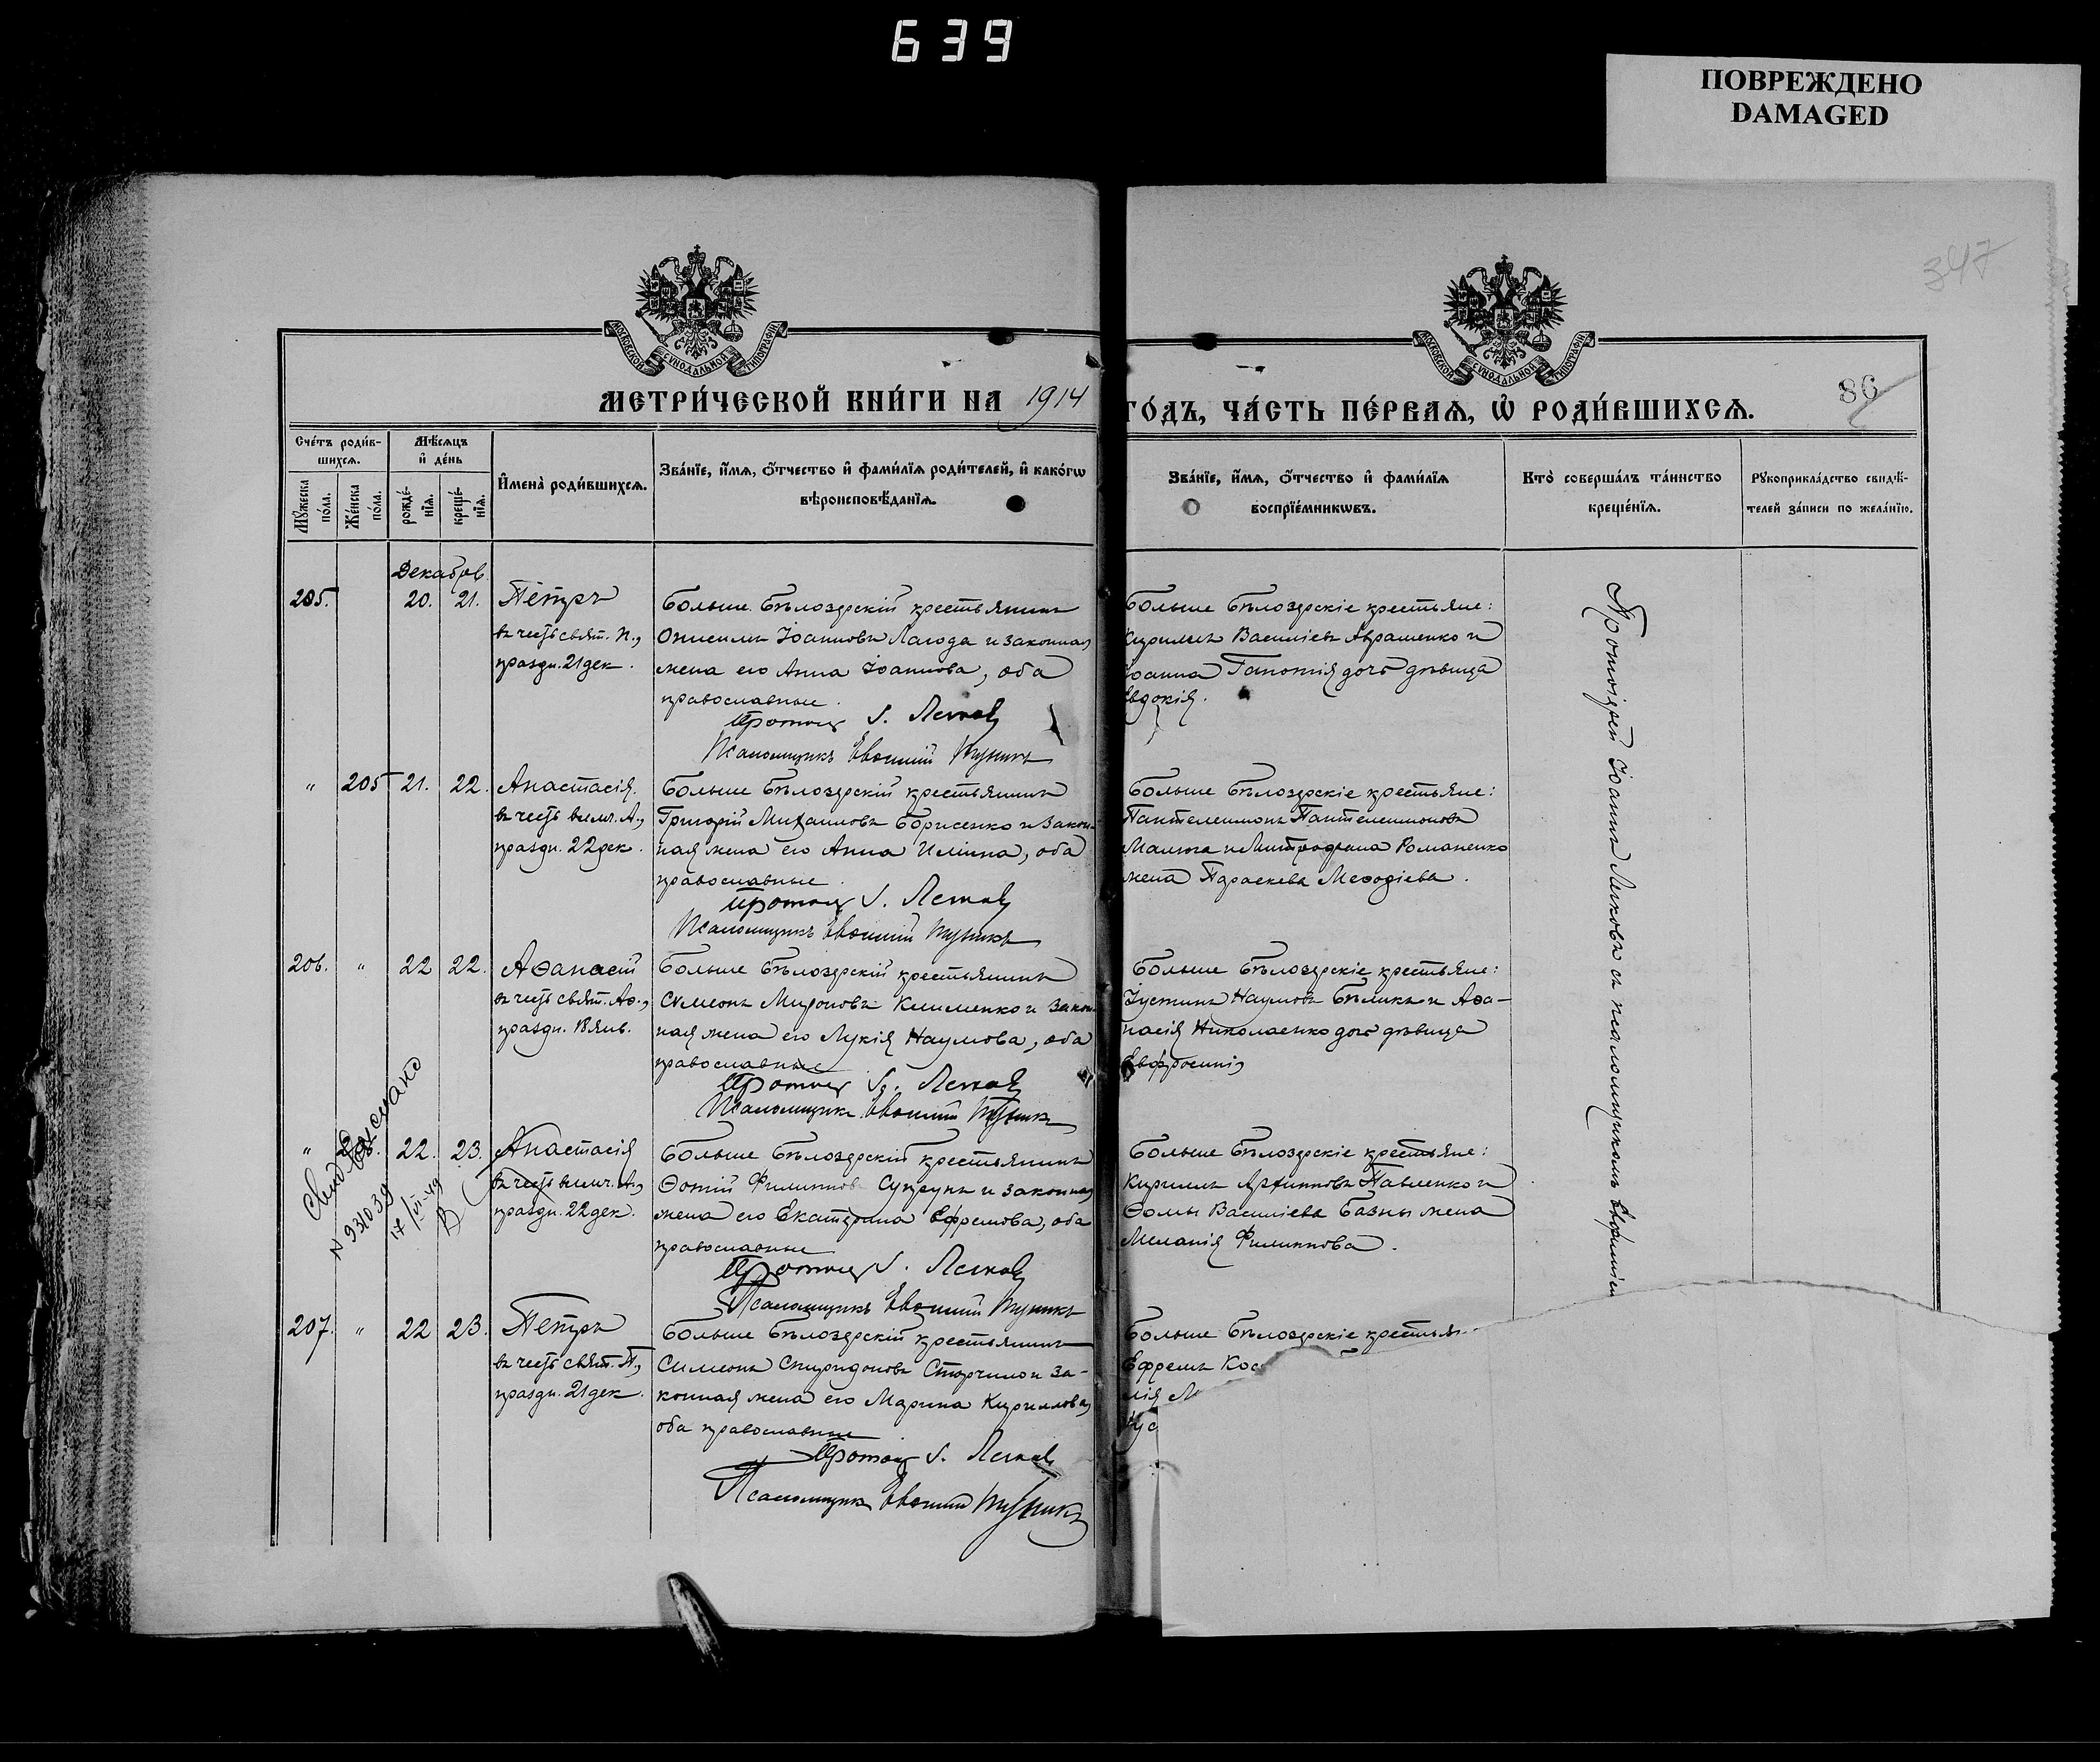 639
ПОВРЕЖДЕНО
DAMAGED
347
МОСКОВСКОЙ СУНОДАЛЬНОЙ ТИПОГРАФІИ
МОСКОВСКОЙ СУНОДАЛЬНОЙ ТИПОГРАФІИ
86
МЕТРИ́ЧЕСКОЙ КНИ́ГИ НА 1914
ГО́ДЪ, ЧА́СТЬ ПЕ́РВАѦ, Ѡ҆ РОДИ́ВШИХСѦ.
Сче́тъ роди́в-
шихсѧ.
Мѣ́сѧцъ
и҆ де́нь
Мꙋ́жеска по́ла.
Же́нска по́ла.
рожде́-
нїѧ.
креще́-
нїѧ.
И҆мена̀ роди́вшихсѧ.
Зва́нїе, и҆́мѧ, ѻ҆́тчество и҆ фами́лїѧ роди́телей, и҆ како́гѡ
вѣроисповѣ́данїѧ.
Зва́нїе, и҆́мѧ, ѻ҆́тчество и҆ фами́лїѧ
воспрїе́мникѡвъ.
Кто̀ соверша́лъ та́инство
креще́нїѧ.
Рꙋкоприкла́дство свидѣ́-
телей за́писи по жела́нїю.
Декабрь
205. 20. 21. Петръ
въ честь свят. П.,
праздн. 21 дек.
Больше Бѣлозерскій крестьянинъ
Онисимъ Іоанновъ Лагода и законная
жена его Анна Іоаннова, оба
православные.
Протоіер. І. Лычковъ
Псаломщикъ Евфимій
Больше Бѣлозерскіе крестьяне:
Кириллъ Василіевъ Аврашенко и
Іоанна дочь дѣвица
Евдокія.
" 205 21. 22. Анастасія
въ честь велмч. А.,
праздн. 22 дек.
Больше Бѣлозерскій крестьянинъ
Григорій Михаиловъ Борисенко и закон-
ная жена его Анна Иліина, оба
православные.
Протоіер. І. Лычковъ
Псаломщикъ Евфимій
Больше Бѣлозерскіе крестьяне:
Пантелеимонъ Пантелеимоновъ
Малюга и Митрофана Романенко
жена Параскева Меѳодіева.
206. " 22 22. Аѳанасій
въ честь свят. Аѳ.,
праздн. 18 янв.
Больше Бѣлозерскій крестьянинъ
Сѵмеонъ Мироновъ Клименко и закон-
ная жена его Лукія Наумова, оба
православные
Протоіер. І. Лычковъ
Псаломщикъ Евфимій
Больше Бѣлозерскіе крестьяне:
Іустинъ Наумовъ Бѣликъ и Аѳа-
насія Николаенко дочь дѣвица
Евфросинія
" 22. 23. Анастасія
въ честь велмч. А.,
праздн. 22 дек.
N 931039
17/VI-49
Больше Бѣлозерскій крестьянинъ
Ѳотій Филипповъ Супрунъ и законная
жена его Екатерина Ефремова, оба
православные
Протоіер. І. Лычковъ
Псаломщикъ Евфимій
Больше Бѣлозерскіе крестьяне:
Кириллъ Архипповъ Павленко и
Ѳомы Василіева Базны жена
Меланія Филиппова.
207. " 22 23. Петръ
въ честь свят. П.,
праздн. 21 дек.
Больше Бѣлозерскій крестьянинъ
Симеонъ Спиридоновъ Сторчило и за-
конная жена его Марина Кириллова,
оба православные
Протоіер. І. Лычковъ
Псаломщикъ Евфимій
Больше Бѣлозерскіе крестьян
Ефремъ Кос
лія М
Протоіерей Іоаннъ Лычковъ съ псаломщикомъ Евфиміем